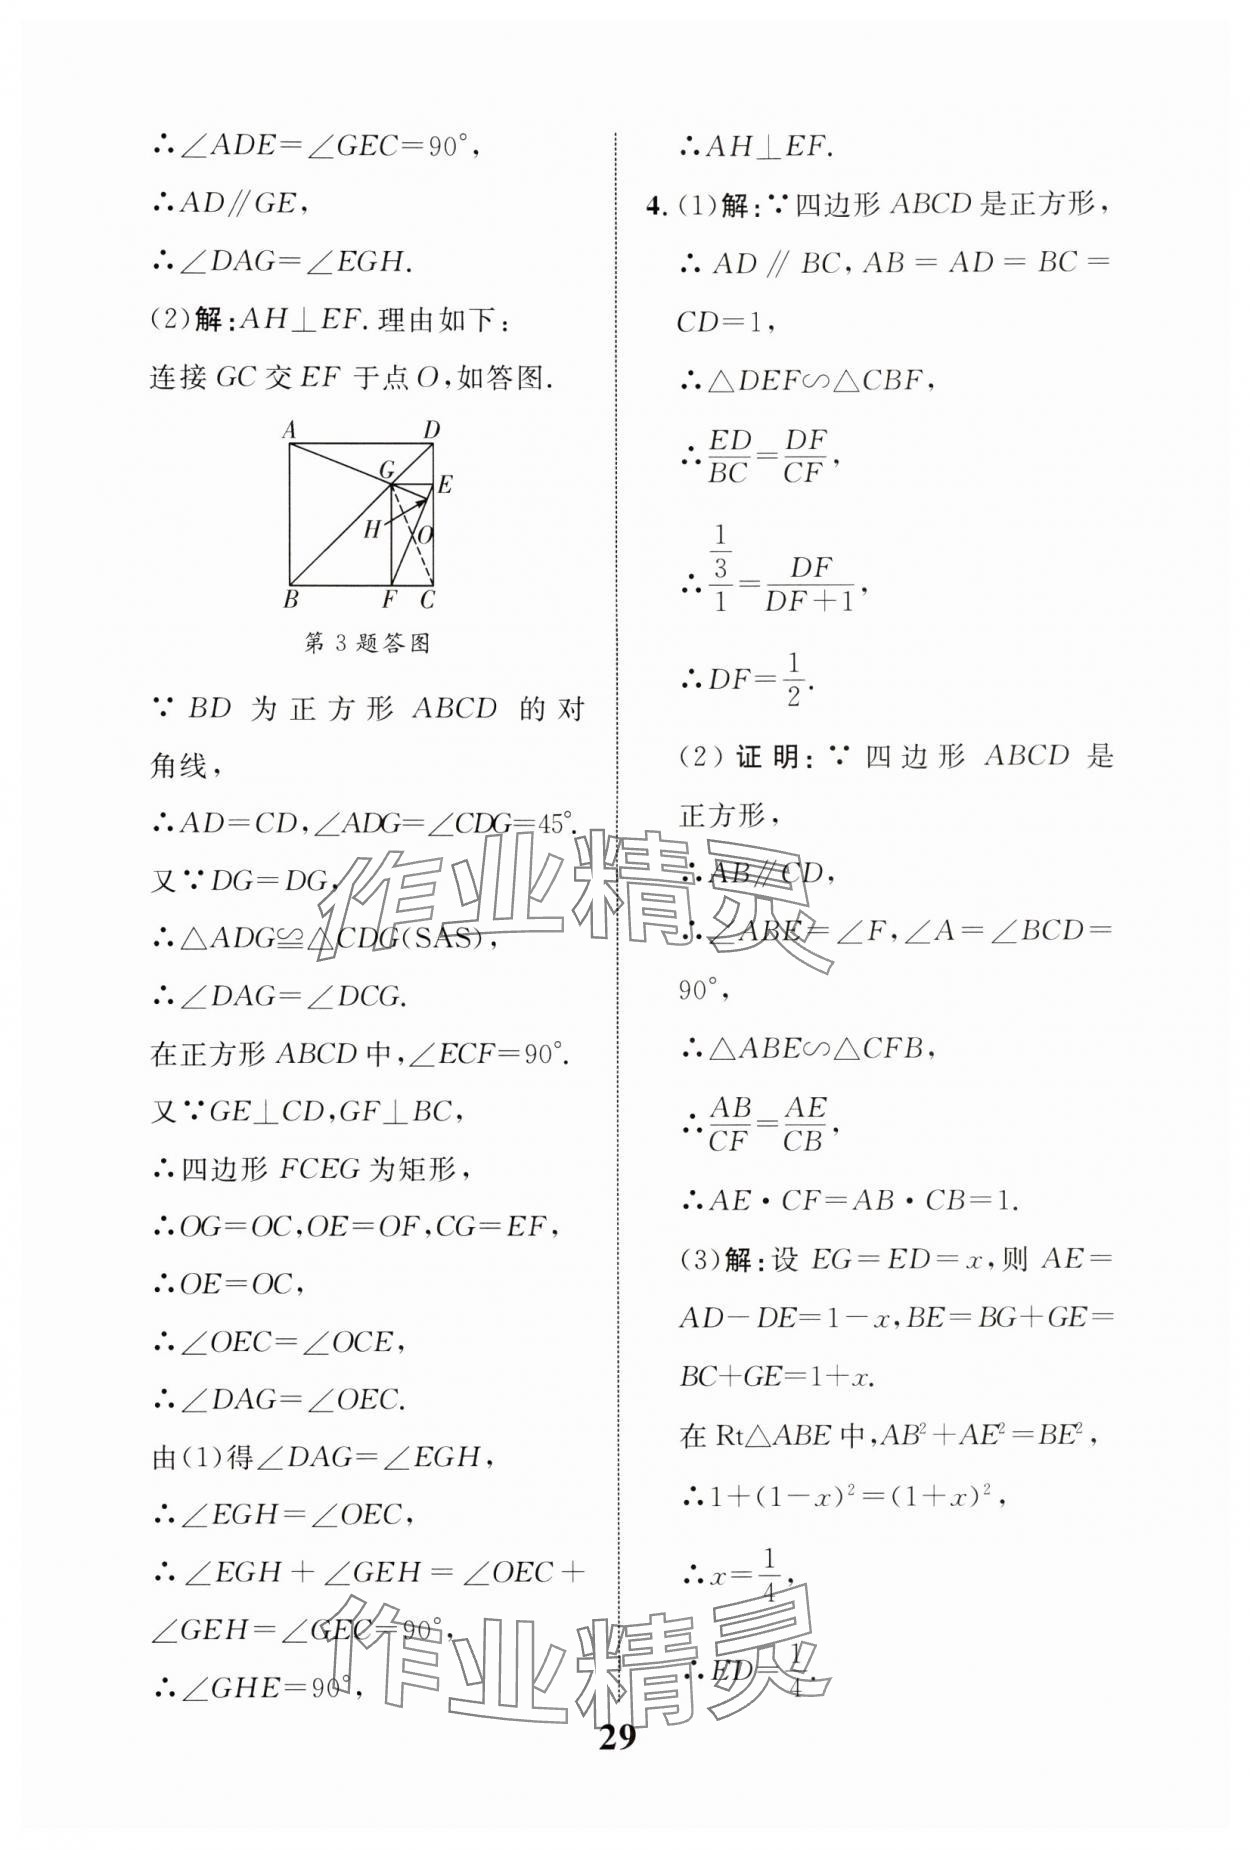 ∴∠ADE=∠GEC=90°,
∴AD∥GE,
∴∠DAG=∠EGH.
(2)解:AH⊥EF.理由如下:
连接GC交EF于点O,如答图.
A D
G
E
H
O
B F C
第3题答图
∵BD为正方形ABCD的对
角线,
∴AD=CD,∠ADG=∠CDG=45°.
又∵DG=DG,
∴△ADG≌△CDG(SAS),
∴∠DAG=∠DCG.
在正方形ABCD中,∠ECF=90°.
又∵GE⊥CD,GF⊥BC,
∴四边形FCEG为矩形,
∴OG=OC,OE=OF,CG=EF,
∴OE=OC,
∴∠OEC=∠OCE,
∴∠DAG=∠OEC.
由(1)得∠DAG=∠EGH,
∴∠EGH=∠OEC,
∴∠EGH+∠GEH=∠OEC+
∠GEH=∠GEC=90°,
∴∠GHE=90°,
∴AH⊥EF.
4.(1)解:∵四边形ABCD是正方形,
∴AD∥BC,AB=AD=BC=
CD=1,
∴△DEF∽△CBF,
∴ED/BC=DF/CF,
∴(1/3)/1=DF/(DF+1),
∴DF=1/2.
(2)证明:∵四边形ABCD是
正方形,
∴AB∥CD,
∴∠ABE=∠F,∠A=∠BCD=
90°,
∴△ABE∽△CFB,
∴AB/CF=AE/CB,
∴AE·CF=AB·CB=1.
(3)解:设EG=ED=x,则AE=
AD-DE=1-x,BE=BG+GE=
BC+GE=1+x.
在Rt△ABE中,AB²+AE²=BE²,
∴1+(1-x)²=(1+x)²,
∴x=1/4,
∴ED=1/4.
作业精灵
作业精灵
29